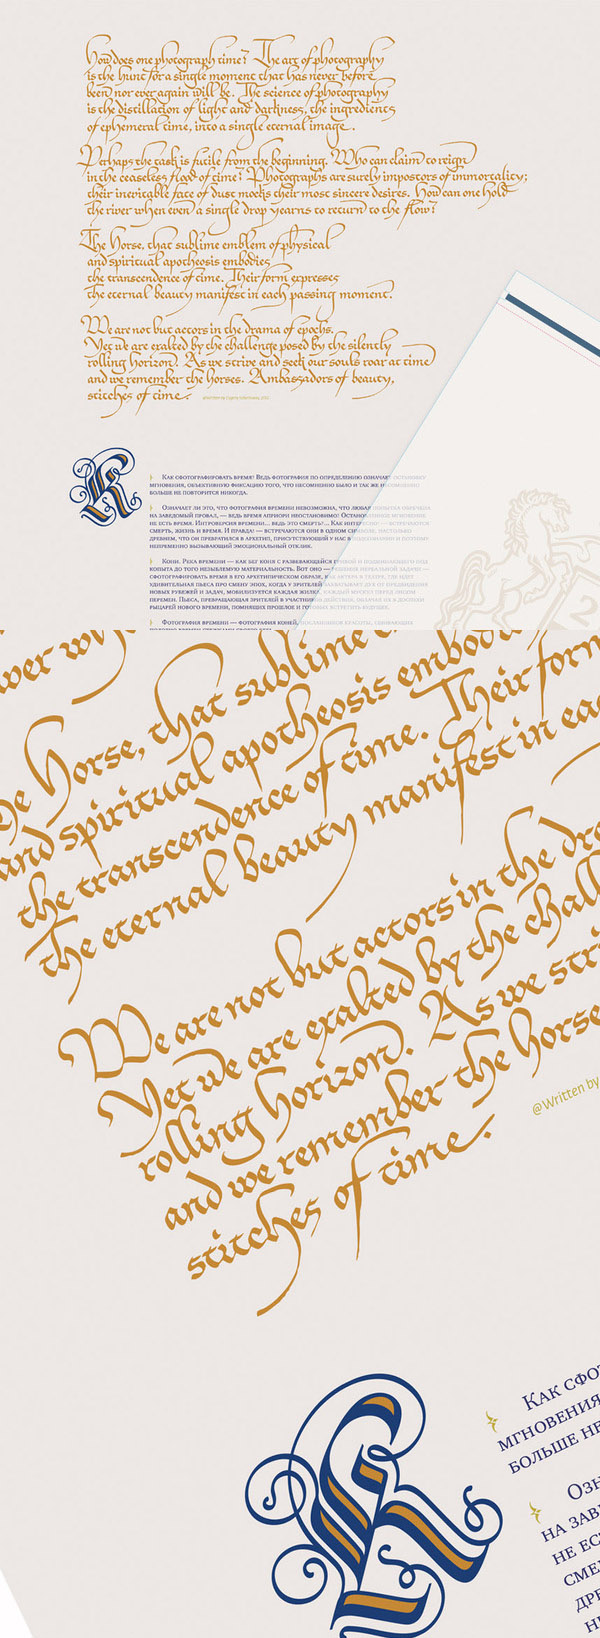 How does one photograph time? The art of photography
is the hunt for a single moment that has never before
been nor ever again will be. The science of photography
is the distillation of light and darkness, the ingredients
of ephemeral time, into a single eternal image.
Perhaps the task is futile from the beginning. Who can claim to reign
in the ceaseless flood of time? Photographs are surely impostors of immortality;
their inevitable face of dust mocks their most sincere desires. How can one hold
the river when even a single drop yearns to return to the flow?
The Horse, that sublime emblem of physical
and spiritual apotheosis embodies
the transcendence of time. Their form expresses
the eternal beauty manifest in each passing moment.
We are not but actors in the drama of epochs.
Yet we are exalted by the challenge posed by the silently
rolling horizon. As we strive and seek our souls roar at time
and we remember the horses. Ambassadors of beauty,
stitches of time.
К
Как сфотографировать время? Ведь фотография по определению означает остановку
мгновения, объективную фиксацию того, что несомненно было и так же несомненно
больше не повторится никогда.
Означает ли это, что фотография времени невозможна, что любая попытка обречена
на заведомый провал, — ведь время априори неостановимо!
не есть время. Интроверсия времени... ведь это смерть!...
смерть, жизнь и время. И правда! — встречаются они в одном
древнем, что он превратился в архетип, присутствующий у нас в
непременно вызывающий эмоциональный отклик.
Кони. Река времени — как без коня с развевающейся
копыта до того незыблемую материальность. Вот оно —
сфотографировать время в его архетипическом образе,
удивительная пьеса про смену эпох, когда у зрителей
новых рубежей и задач, мобилизуется каждая жилка,
перемен. Пьеса, превращающая зрителей в участников
рыцарей нового времени, помнящих прошлое и готовых встретить будущее.
Фотография времени — фотография коней,
2
wer wh
he Horse, that sublime e
and spiritual apotheosis embod
the transcendence of time. Their form
the eternal beauty manifest in eac
We are not but actors in the dra
Yet we are exalted by the chall
rolling horizon. As we stri
and we remember the horse
stitches of time.
@Written by
К
Как сфот
мгновения
больше не
Озн
на заве
не ес
сме
дре